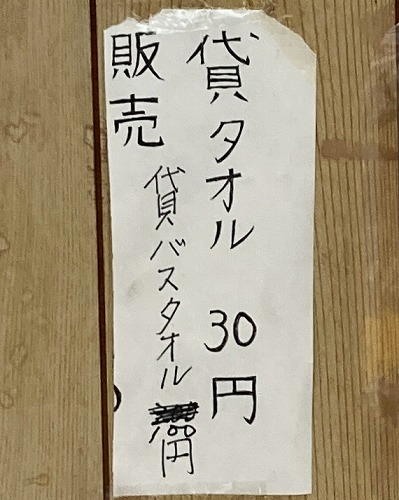 貸タオル 30円
貸バスタオル 100円
販売